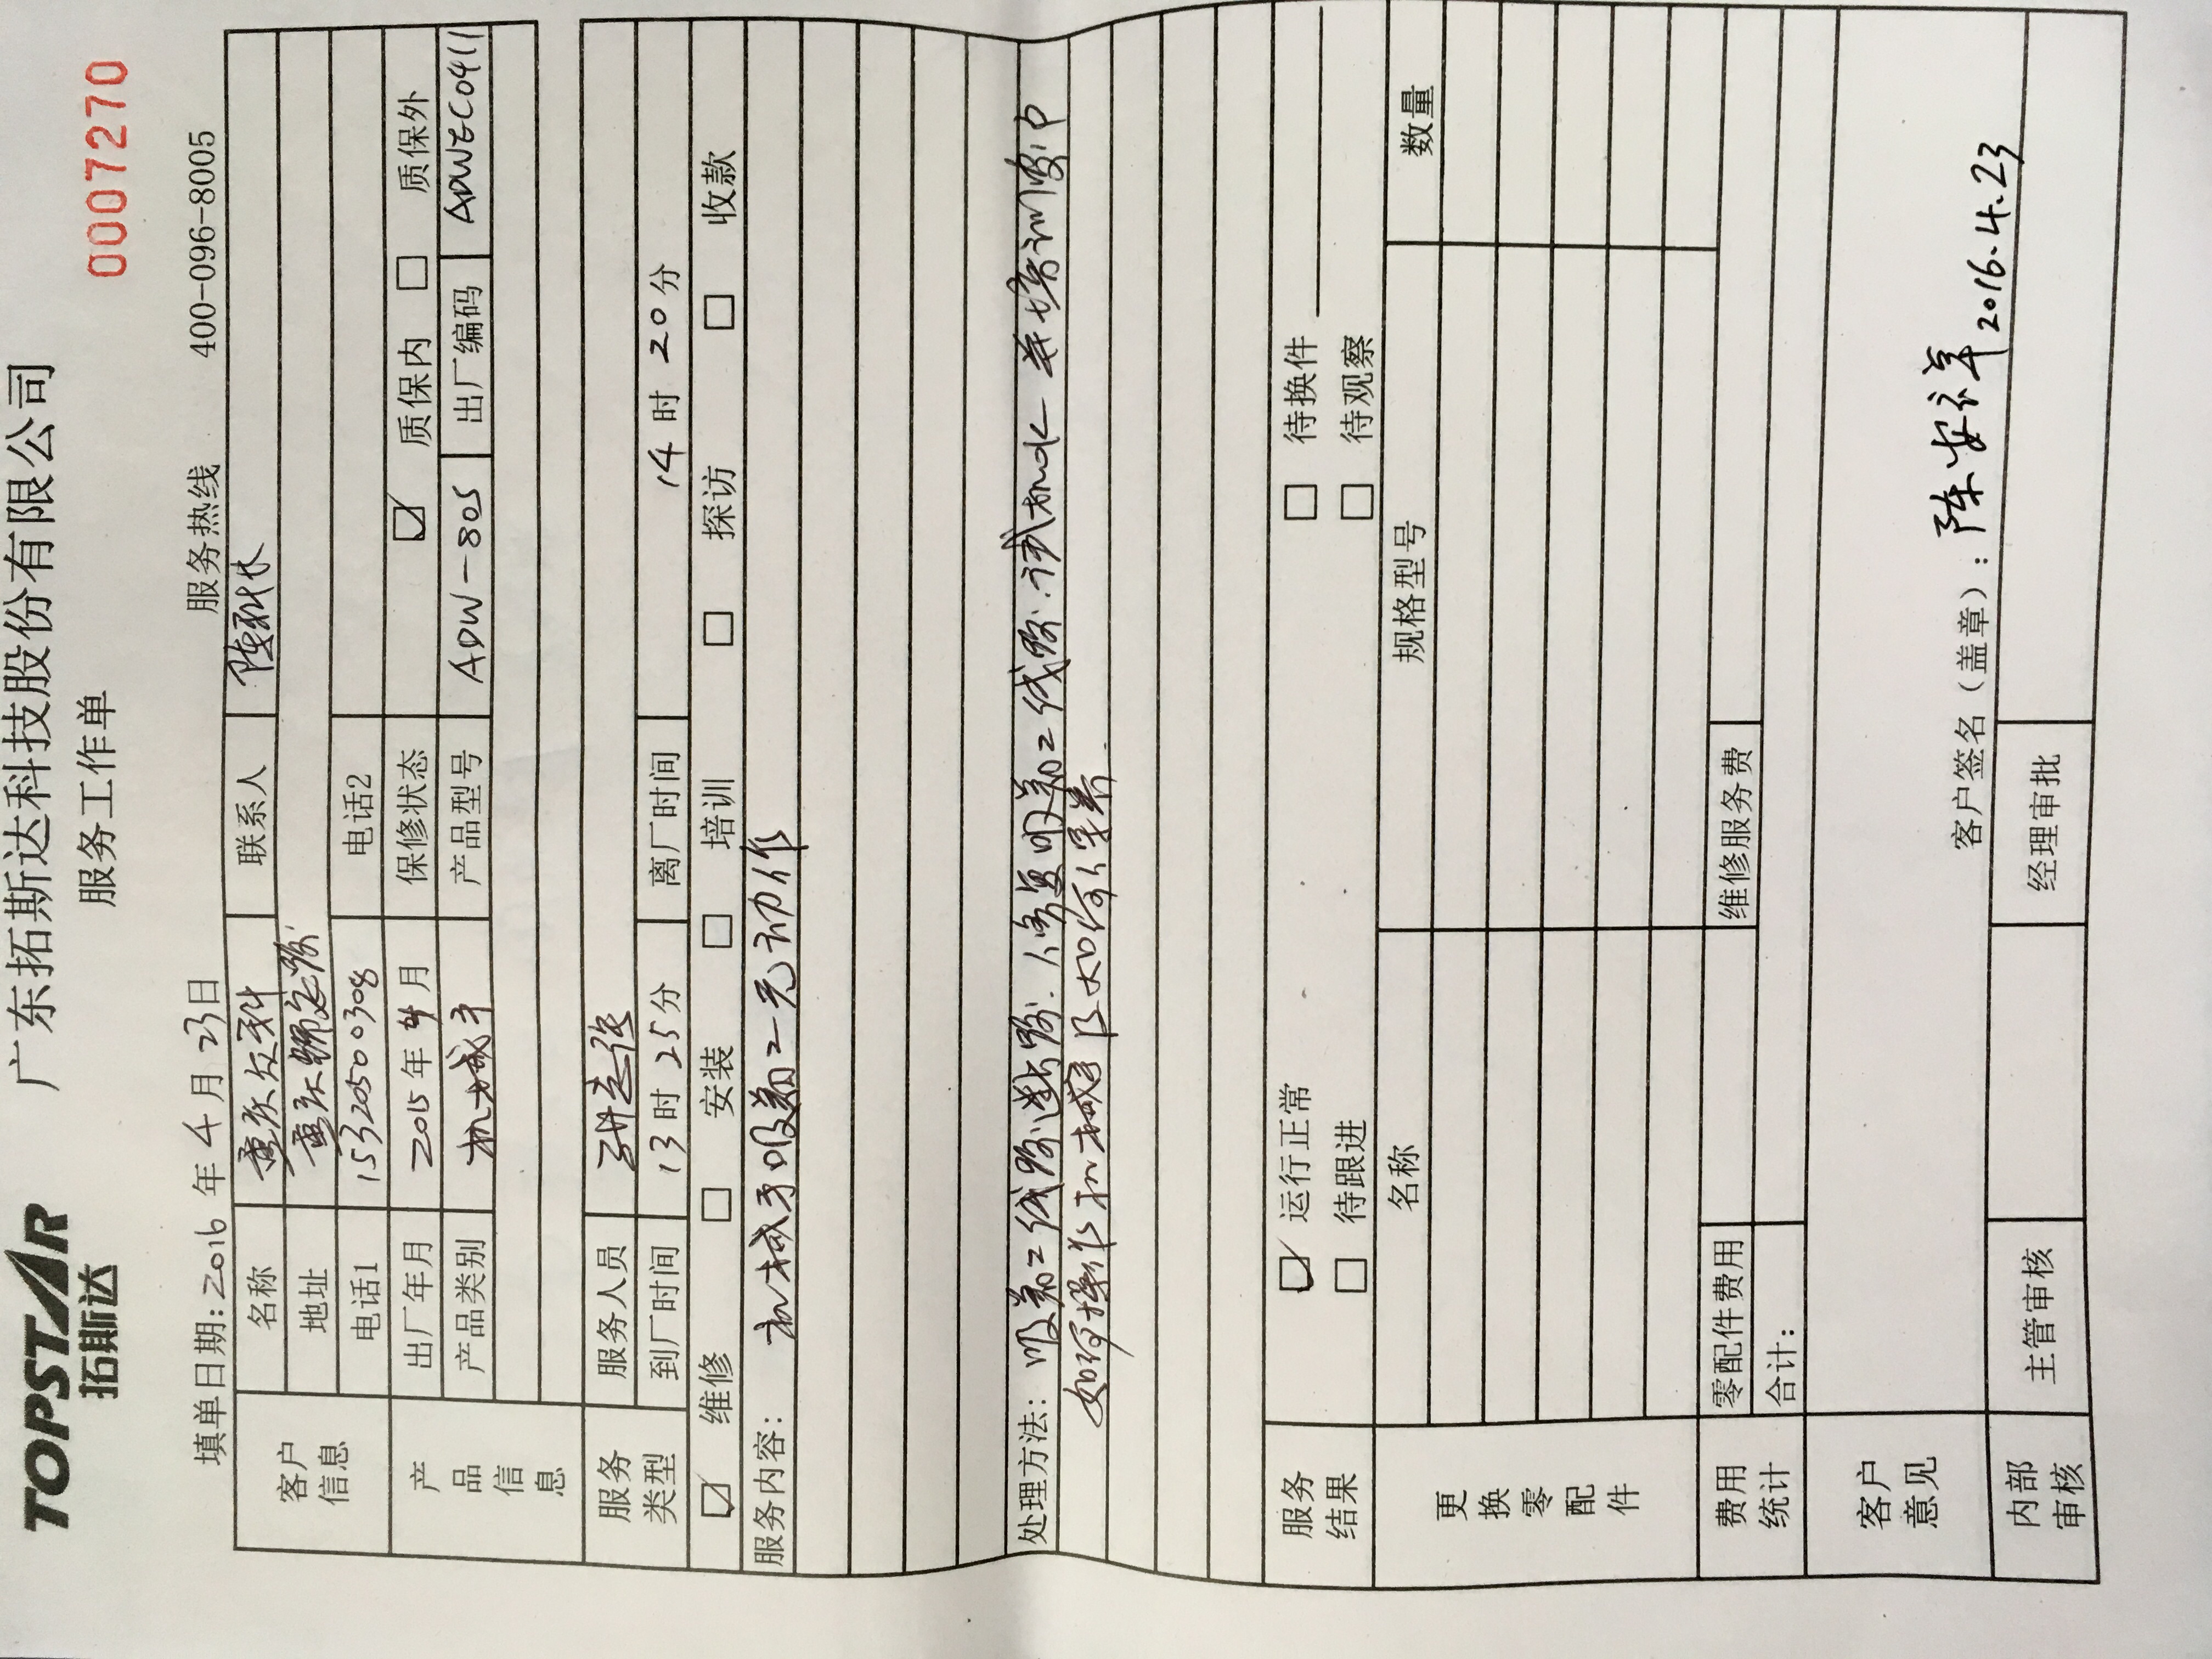 TOPSTAR
拓斯达
广东拓斯达科技股份有限公司
服务工作单
0007270
填单日期: 2016 年 4 月 23 日 服务热线 400-096-8005
客户信息
名称 重庆众科 联系人 陈
地址 重庆
电话1 15320500308 电话2
产品信息
出厂年月 2015 年 4 月 保修状态 ☑ 质保内 □ 质保外
产品类别 机械手 产品型号 ADW-80S 出厂编码 ADWEC0411
服务类型
服务人员
到厂时间 13 时 25 分 离厂时间 14 时 20 分
☑ 维修 □ 安装 □ 培训 □ 探访 □ 收款
服务内容: 机械手吸着二无动作
处理方法: 吸着二线路断路.修复吸着二线路.试机ok 并培训客户
如何操作机械手及如何保养.
服务结果
☑ 运行正常 □ 待换件
□ 待跟进 □ 待观察
更换零配件
名称 规格型号 数量
费用统计
零配件费用 维修服务费
合计:
客户意见
客户签名（盖章）: 陈安祥 2016.4.23
内部审核
主管审核 经理审批